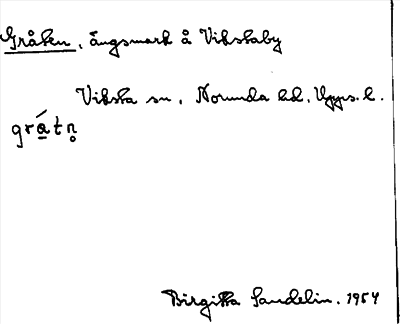 Gråten, ängsmark å Viksta by
Viksta sn, Norunda hd, Upps. l.
grá̱tn̥
Birgitta Sandelin. 1954